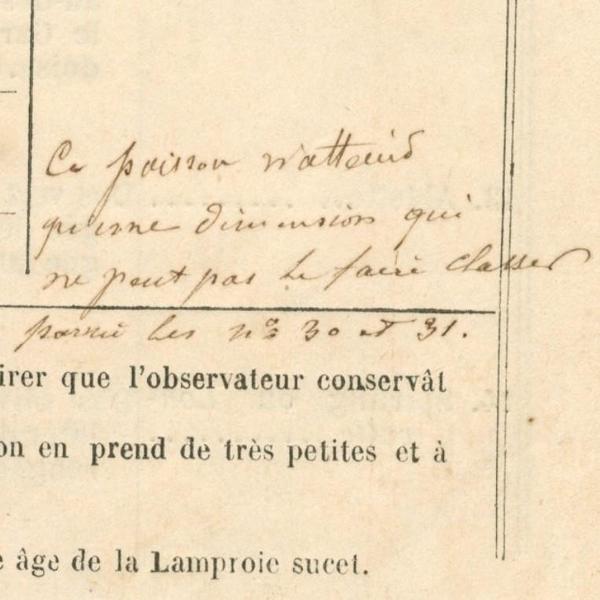 Ce poisson n'atteind
qu'une dimension qui
ne peut pas le faire classer
parmi les nos 30 et 31.
irer que l'observateur conservât
on en prend de très petites et à
e âge de la Lamproie sucet.